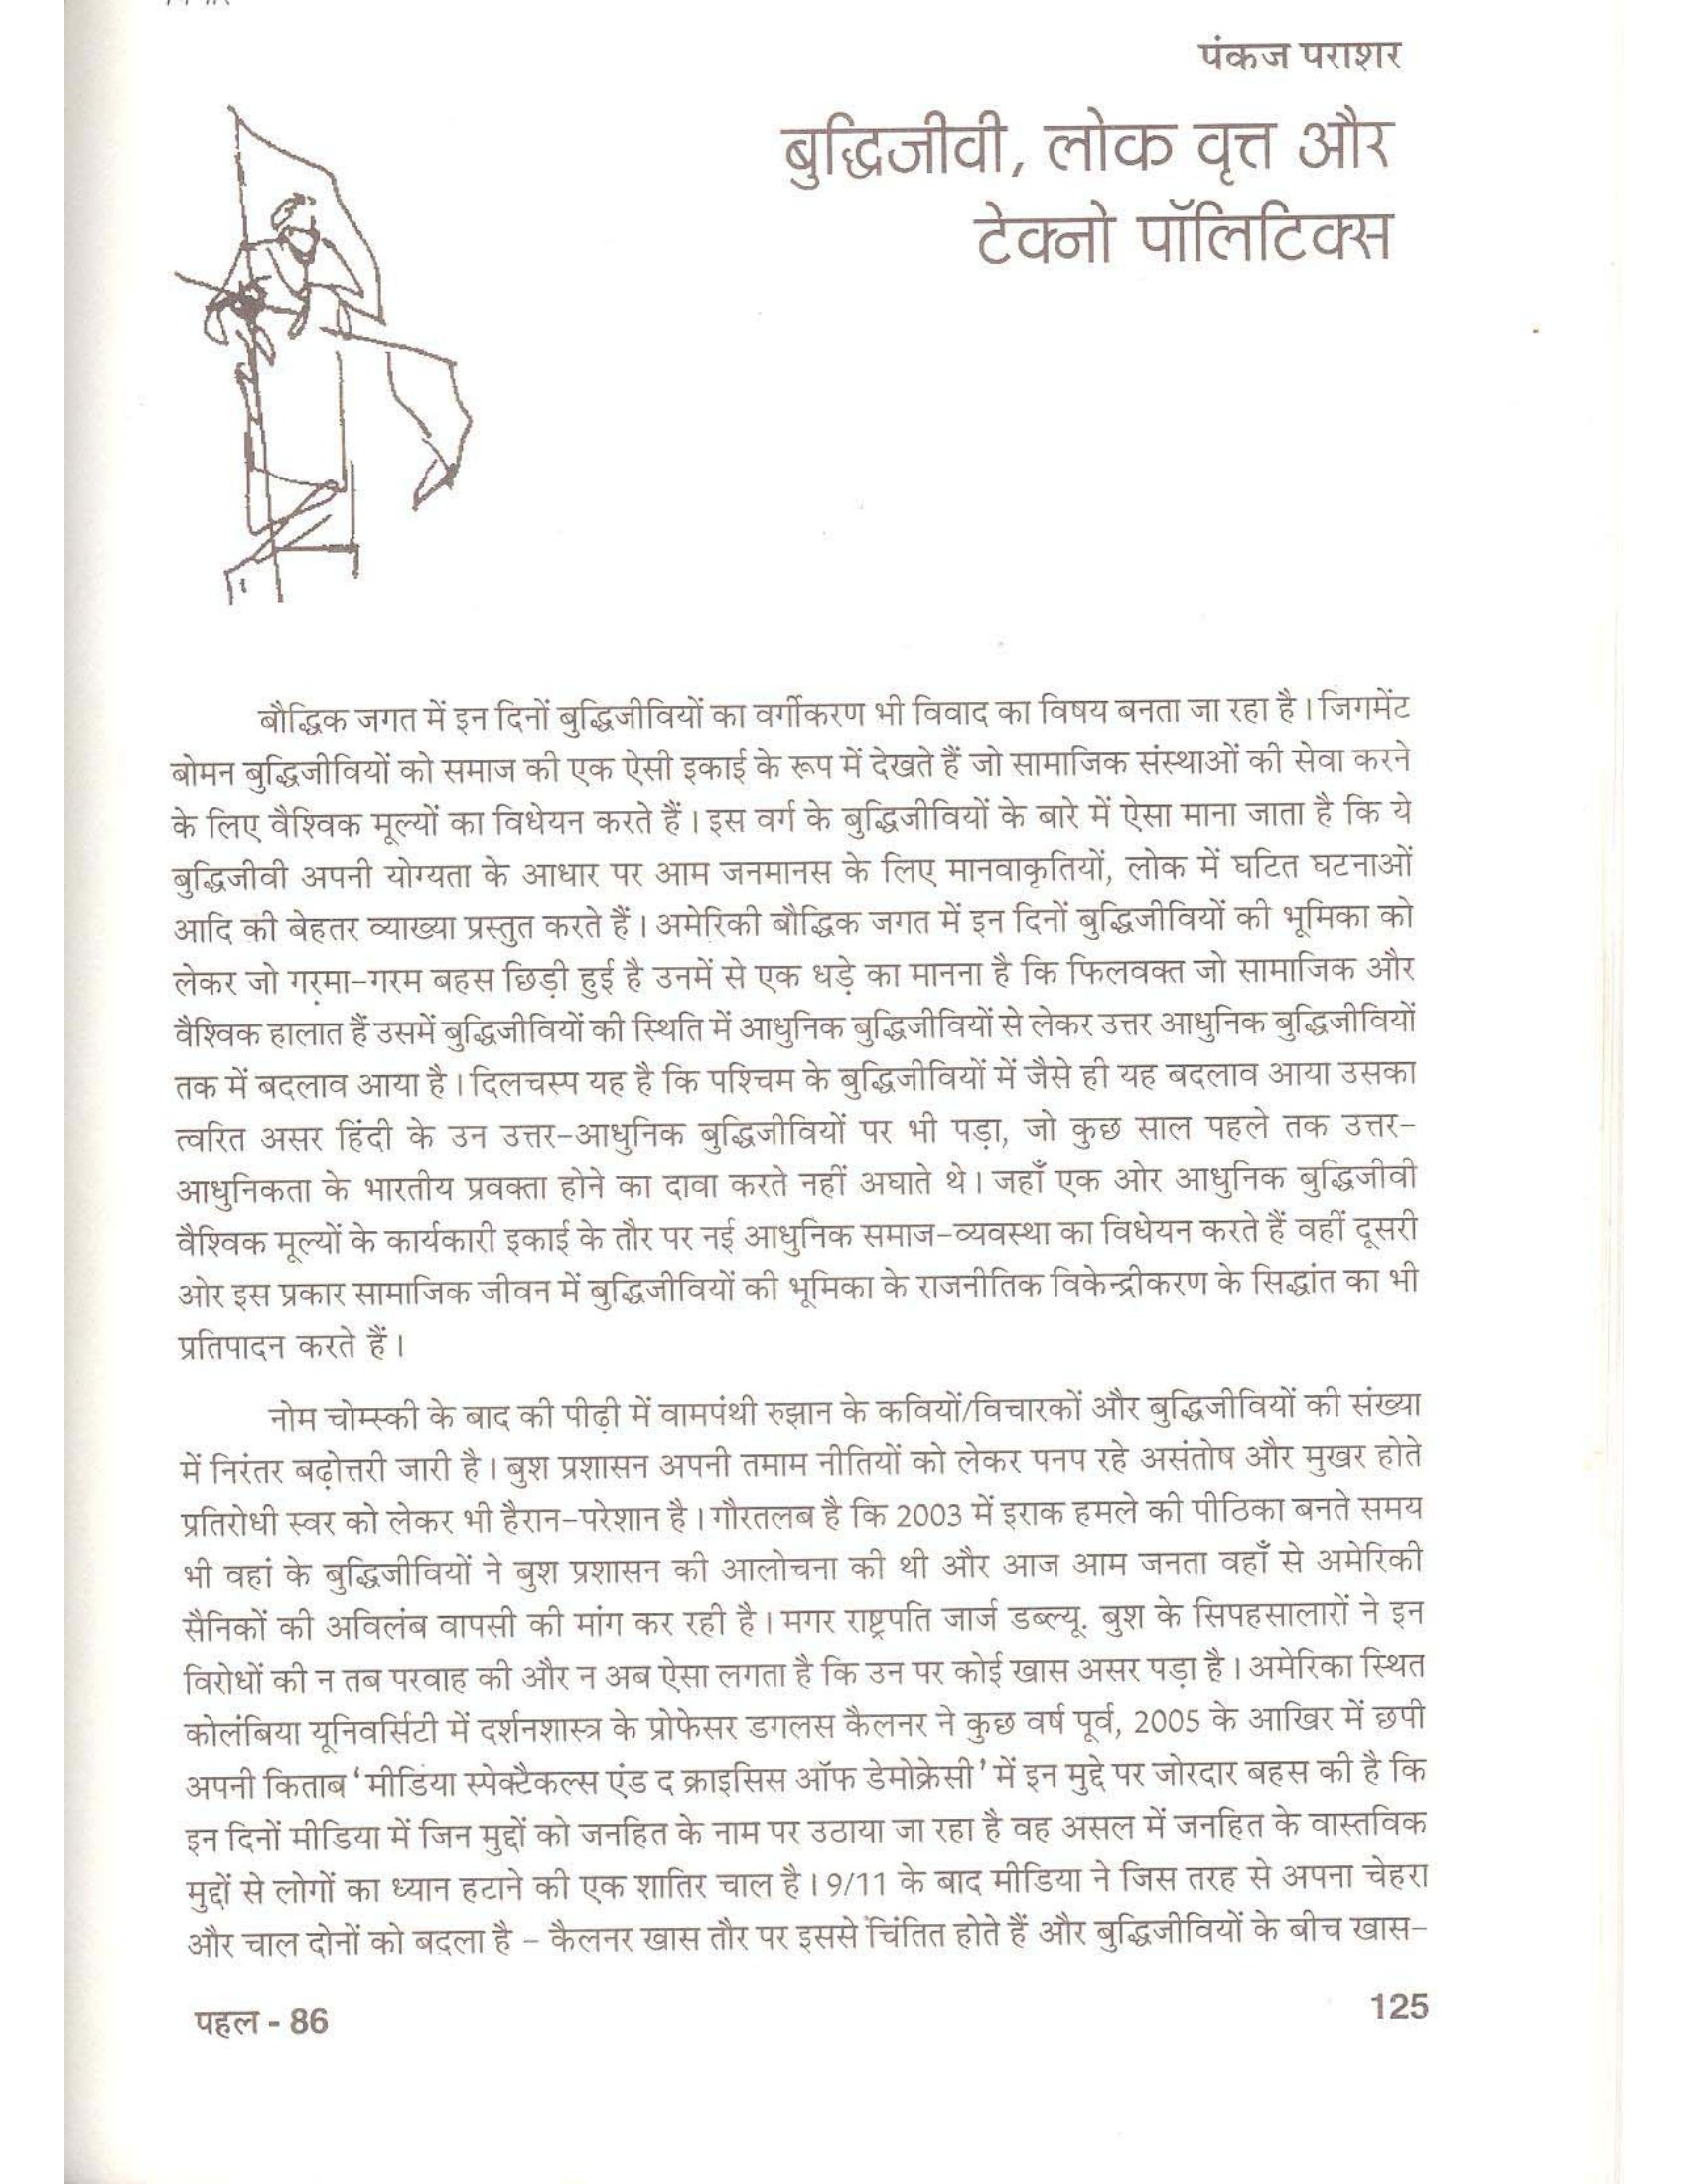 पंकज पराशर
बुद्धिजीवी, लोक वृत्त और
टेक्नो पॉलिटिक्स
बौद्धिक जगत में इन दिनों बुद्धिजीवियों का वर्गीकरण भी विवाद का विषय बनता जा रहा है। जिगमेंट
बोमन बुद्धिजीवियों को समाज की एक ऐसी इकाई के रूप में देखते हैं जो सामाजिक संस्थाओं की सेवा करने
के लिए वैश्विक मूल्यों का विधेयन करते हैं। इस वर्ग के बुद्धिजीवियों के बारे में ऐसा माना जाता है कि ये
बुद्धिजीवी अपनी योग्यता के आधार पर आम जनमानस के लिए मानवाकृतियों, लोक में घटित घटनाओं
आदि की बेहतर व्याख्या प्रस्तुत करते हैं। अमेरिकी बौद्धिक जगत में इन दिनों बुद्धिजीवियों की भूमिका को
लेकर जो गरमा-गरम बहस छिड़ी हुई है उनमें से एक धड़े का मानना है कि फिलवक्त जो सामाजिक और
वैश्विक हालात हैं उसमें बुद्धिजीवियों की स्थिति में आधुनिक बुद्धिजीवियों से लेकर उत्तर आधुनिक बुद्धिजीवियों
तक में बदलाव आया है। दिलचस्प यह है कि पश्चिम के बुद्धिजीवियों में जैसे ही यह बदलाव आया उसका
त्वरित असर हिंदी के उन उत्तर-आधुनिक बुद्धिजीवियों पर भी पड़ा, जो कुछ साल पहले तक उत्तर-
आधुनिकता के भारतीय प्रवक्ता होने का दावा करते नहीं अघाते थे। जहाँ एक ओर आधुनिक बुद्धिजीवी
वैश्विक मूल्यों के कार्यकारी इकाई के तौर पर नई आधुनिक समाज-व्यवस्था का विधेयन करते हैं वहीं दूसरी
ओर इस प्रकार सामाजिक जीवन में बुद्धिजीवियों की भूमिका के राजनीतिक विकेन्द्रीकरण के सिद्धांत का भी
प्रतिपादन करते हैं।
नोम चोम्स्की के बाद की पीढ़ी में वामपंथी रुझान के कवियों/विचारकों और बुद्धिजीवियों की संख्या
में निरंतर बढ़ोत्तरी जारी है। बुश प्रशासन अपनी तमाम नीतियों को लेकर पनप रहे असंतोष और मुखर होते
प्रतिरोधी स्वर को लेकर भी हैरान-परेशान है। गौरतलब है कि 2003 में इराक हमले की पीठिका बनते समय
भी वहां के बुद्धिजीवियों ने बुश प्रशासन की आलोचना की थी और आज आम जनता वहाँ से अमेरिकी
सैनिकों की अविलंब वापसी की मांग कर रही है। मगर राष्ट्रपति जार्ज डब्ल्यू. बुश के सिपहसालारों ने इन
विरोधों की न तब परवाह की और न अब ऐसा लगता है कि उन पर कोई खास असर पड़ा है। अमेरिका स्थित
कोलंबिया यूनिवर्सिटी में दर्शनशास्त्र के प्रोफेसर डगलस कैलनर ने कुछ वर्ष पूर्व, 2005 के आखिर में छपी
अपनी किताब 'मीडिया स्पेक्टैकल्स एंड द क्राइसिस ऑफ डेमोक्रेसी' में इन मुद्दे पर जोरदार बहस की है कि
इन दिनों मीडिया में जिन मुद्दों को जनहित के नाम पर उठाया जा रहा है वह असल में जनहित के वास्तविक
मुद्दों से लोगों का ध्यान हटाने की एक शातिर चाल है। 9/11 के बाद मीडिया ने जिस तरह से अपना चेहरा
और चाल दोनों को बदला है - कैलनर खास तौर पर इससे चिंतित होते हैं और बुद्धिजीवियों के बीच खास-
पहल - 86
125